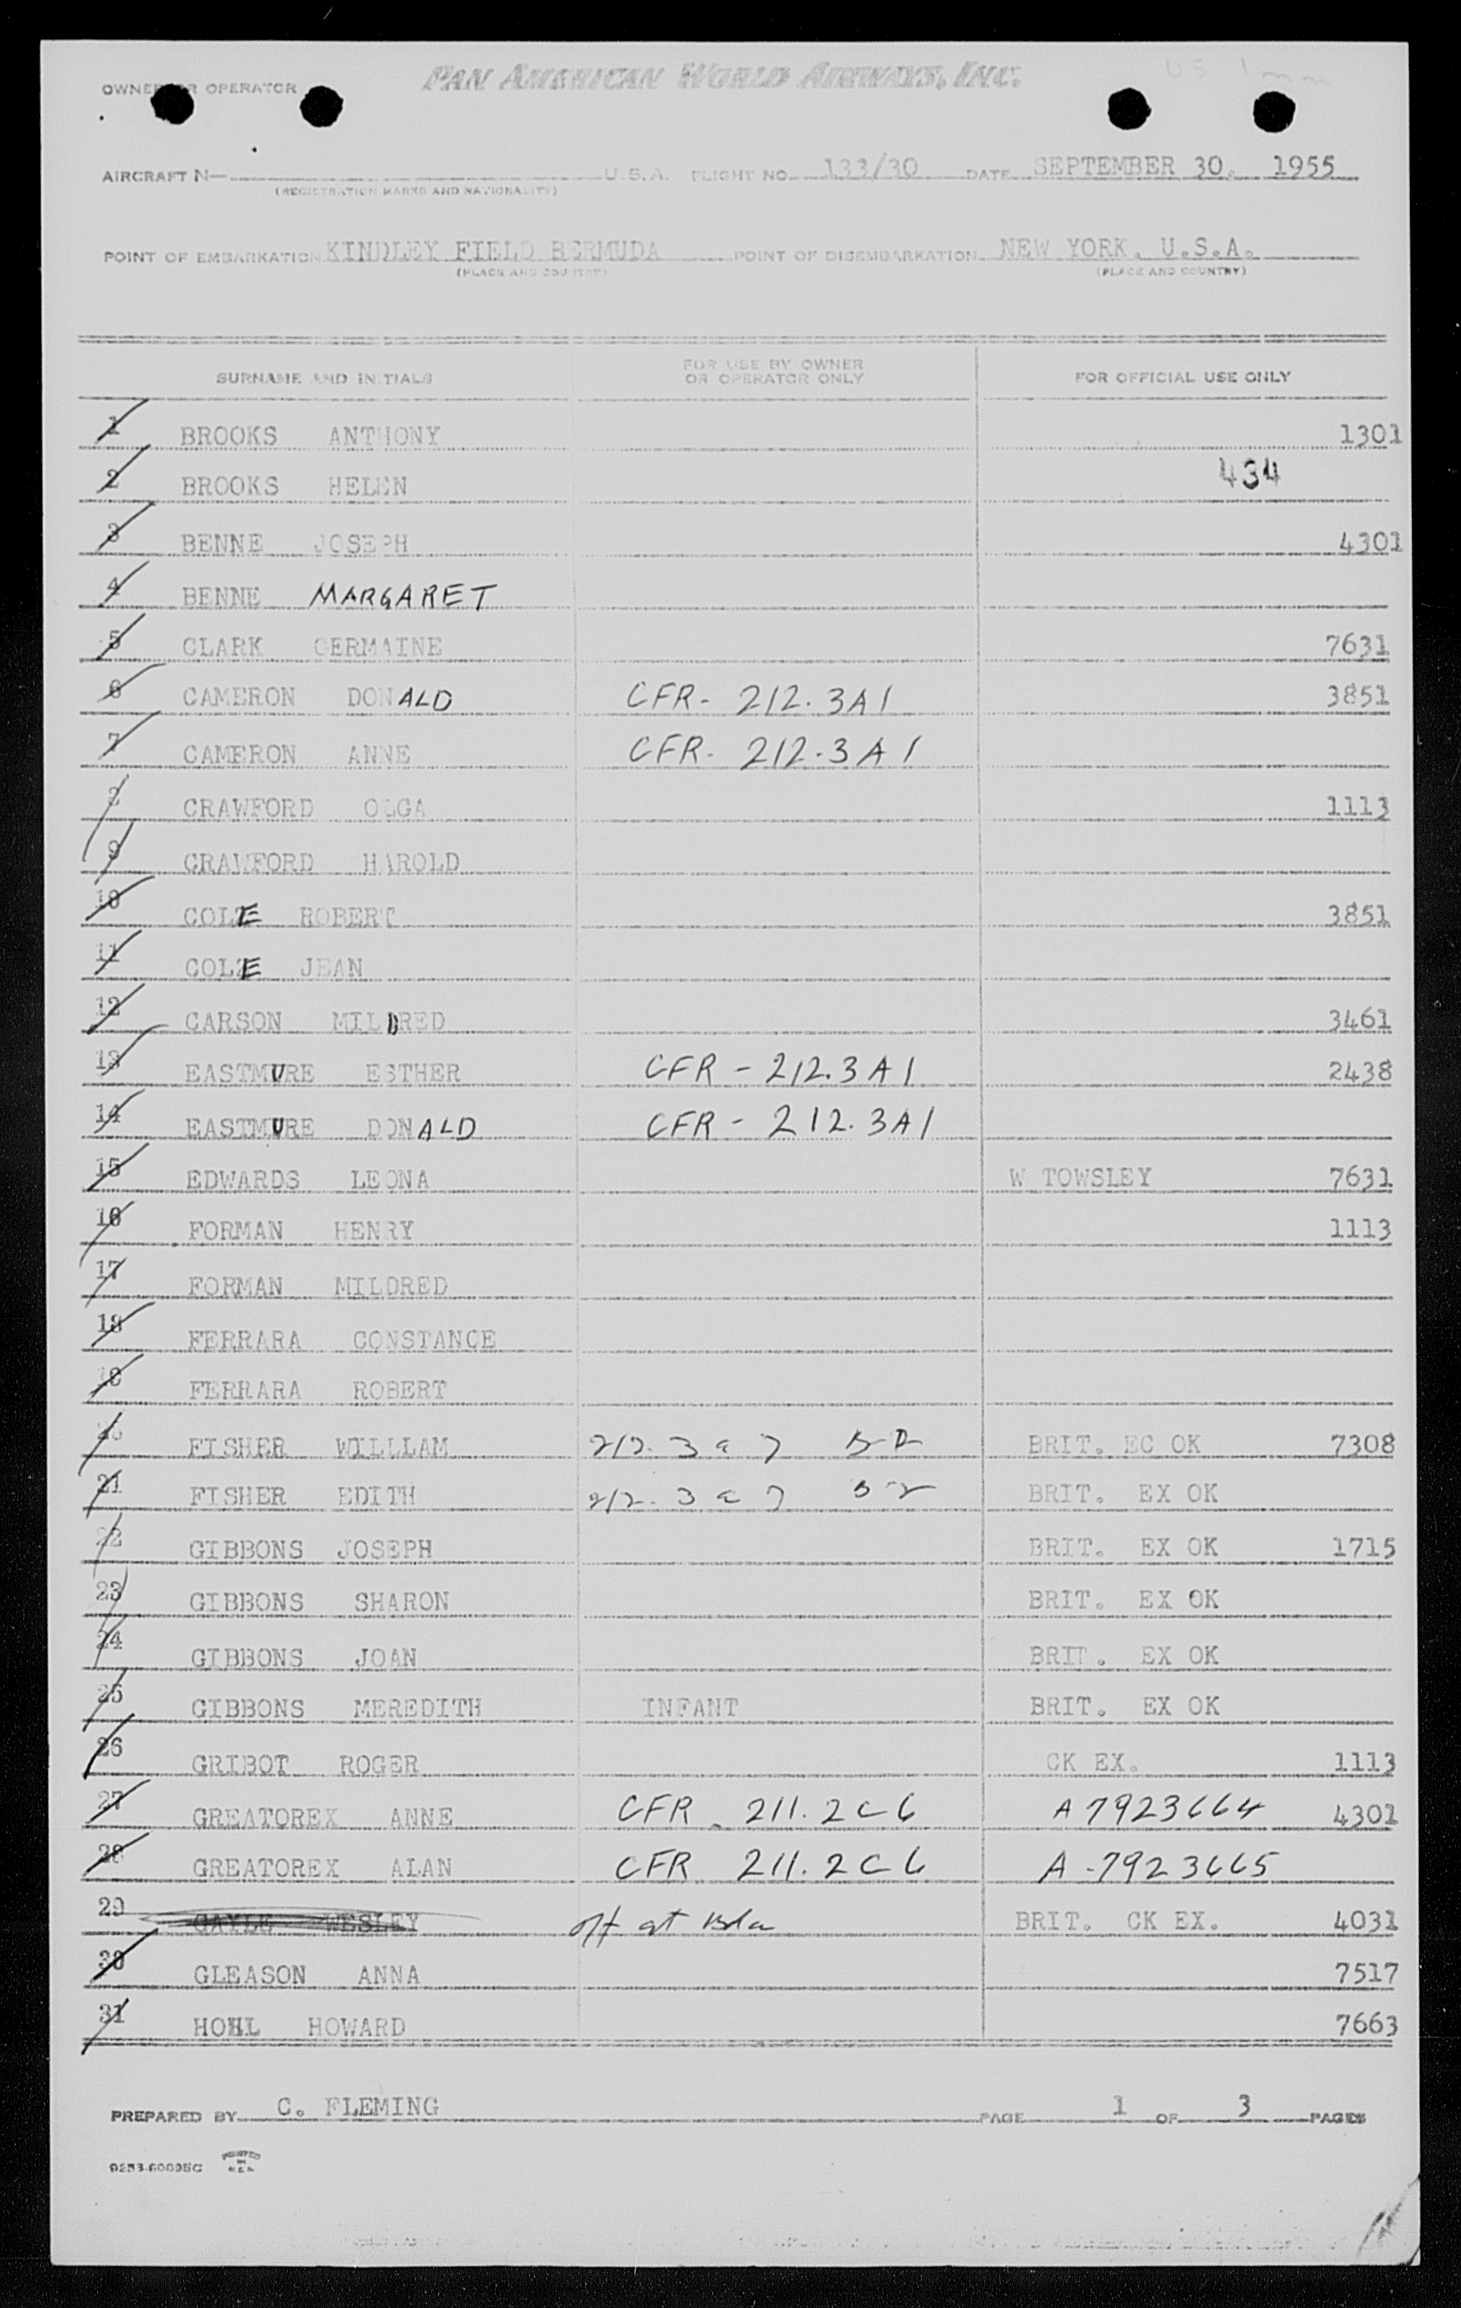 OWNER OR OPERATOR PAN AMERICAN WORLD AIRWAYS, INC.
AIRCRAFT N— U.S.A. FLIGHT NO. 133/30 DATE SEPTEMBER 30. 1955
(REGISTRATION MARKS AND NATIONALITY)
POINT OF EMBARKATION KINDLEY FIELD BERMUDA POINT OF DISEMBARKATION NEW YORK. U.S.A.
(PLACE AND COUNTRY) (PLACE AND COUNTRY)
SURNAME AND INITIALS FOR USE BY OWNER OR OPERATOR ONLY FOR OFFICIAL USE ONLY
1 BROOKS ANTHONY 1301
434
2 BROOKS HELEN
3 BENNE JOSEPH 4301
4 BENNE MARGARET
5 CLARK GERMAINE 7631
6 CAMERON DONALD CFR- 212.3A1 3851
7 CAMERON ANNE CFR- 212.3A1
8 CRAWFORD OLGA 1113
9 CRAWFORD HAROLD
10 COLE ROBERT 3851
11 COLE JEAN
12 CARSON MILDRED 3461
13 EASTMURE ESTHER CFR - 212.3A1 2438
14 EASTMURE DONALD CFR - 212.3A1
15 EDWARDS LEONA W TOWSLEY 7631
16 FORMAN HENRY 1113
17 FORMAN MILDRED
18 FERRARA CONSTANCE
19 FERRARA ROBERT
20 FISHER WILLLAM 212.3a7 B-2 BRIT. EC OK 7308
21 FISHER EDITH 212.3a7 B-2 BRIT. EX OK
22 GIBBONS JOSEPH BRIT. EX OK 1715
23 GIBBONS SHARON BRIT. EX OK
24 GIBBONS JOAN BRIT. EX OK
25 GIBBONS MEREDITH INFANT BRIT. EX OK
26 GRIBOT ROGER CK EX. 1113
27 GREATOREX ANNE CFR 211.2C6 A7923664 4301
28 GREATOREX ALAN CFR 211.2C6 A-7923665
29 GAYLE WESLEY off at Bda BRIT. CK EX. 4031
30 GLEASON ANNA 7517
31 HOHL HOWARD 7663
PREPARED BY C. FLEMING PAGE 1 OF 3 PAGES
PRINTED IN U.S.A.